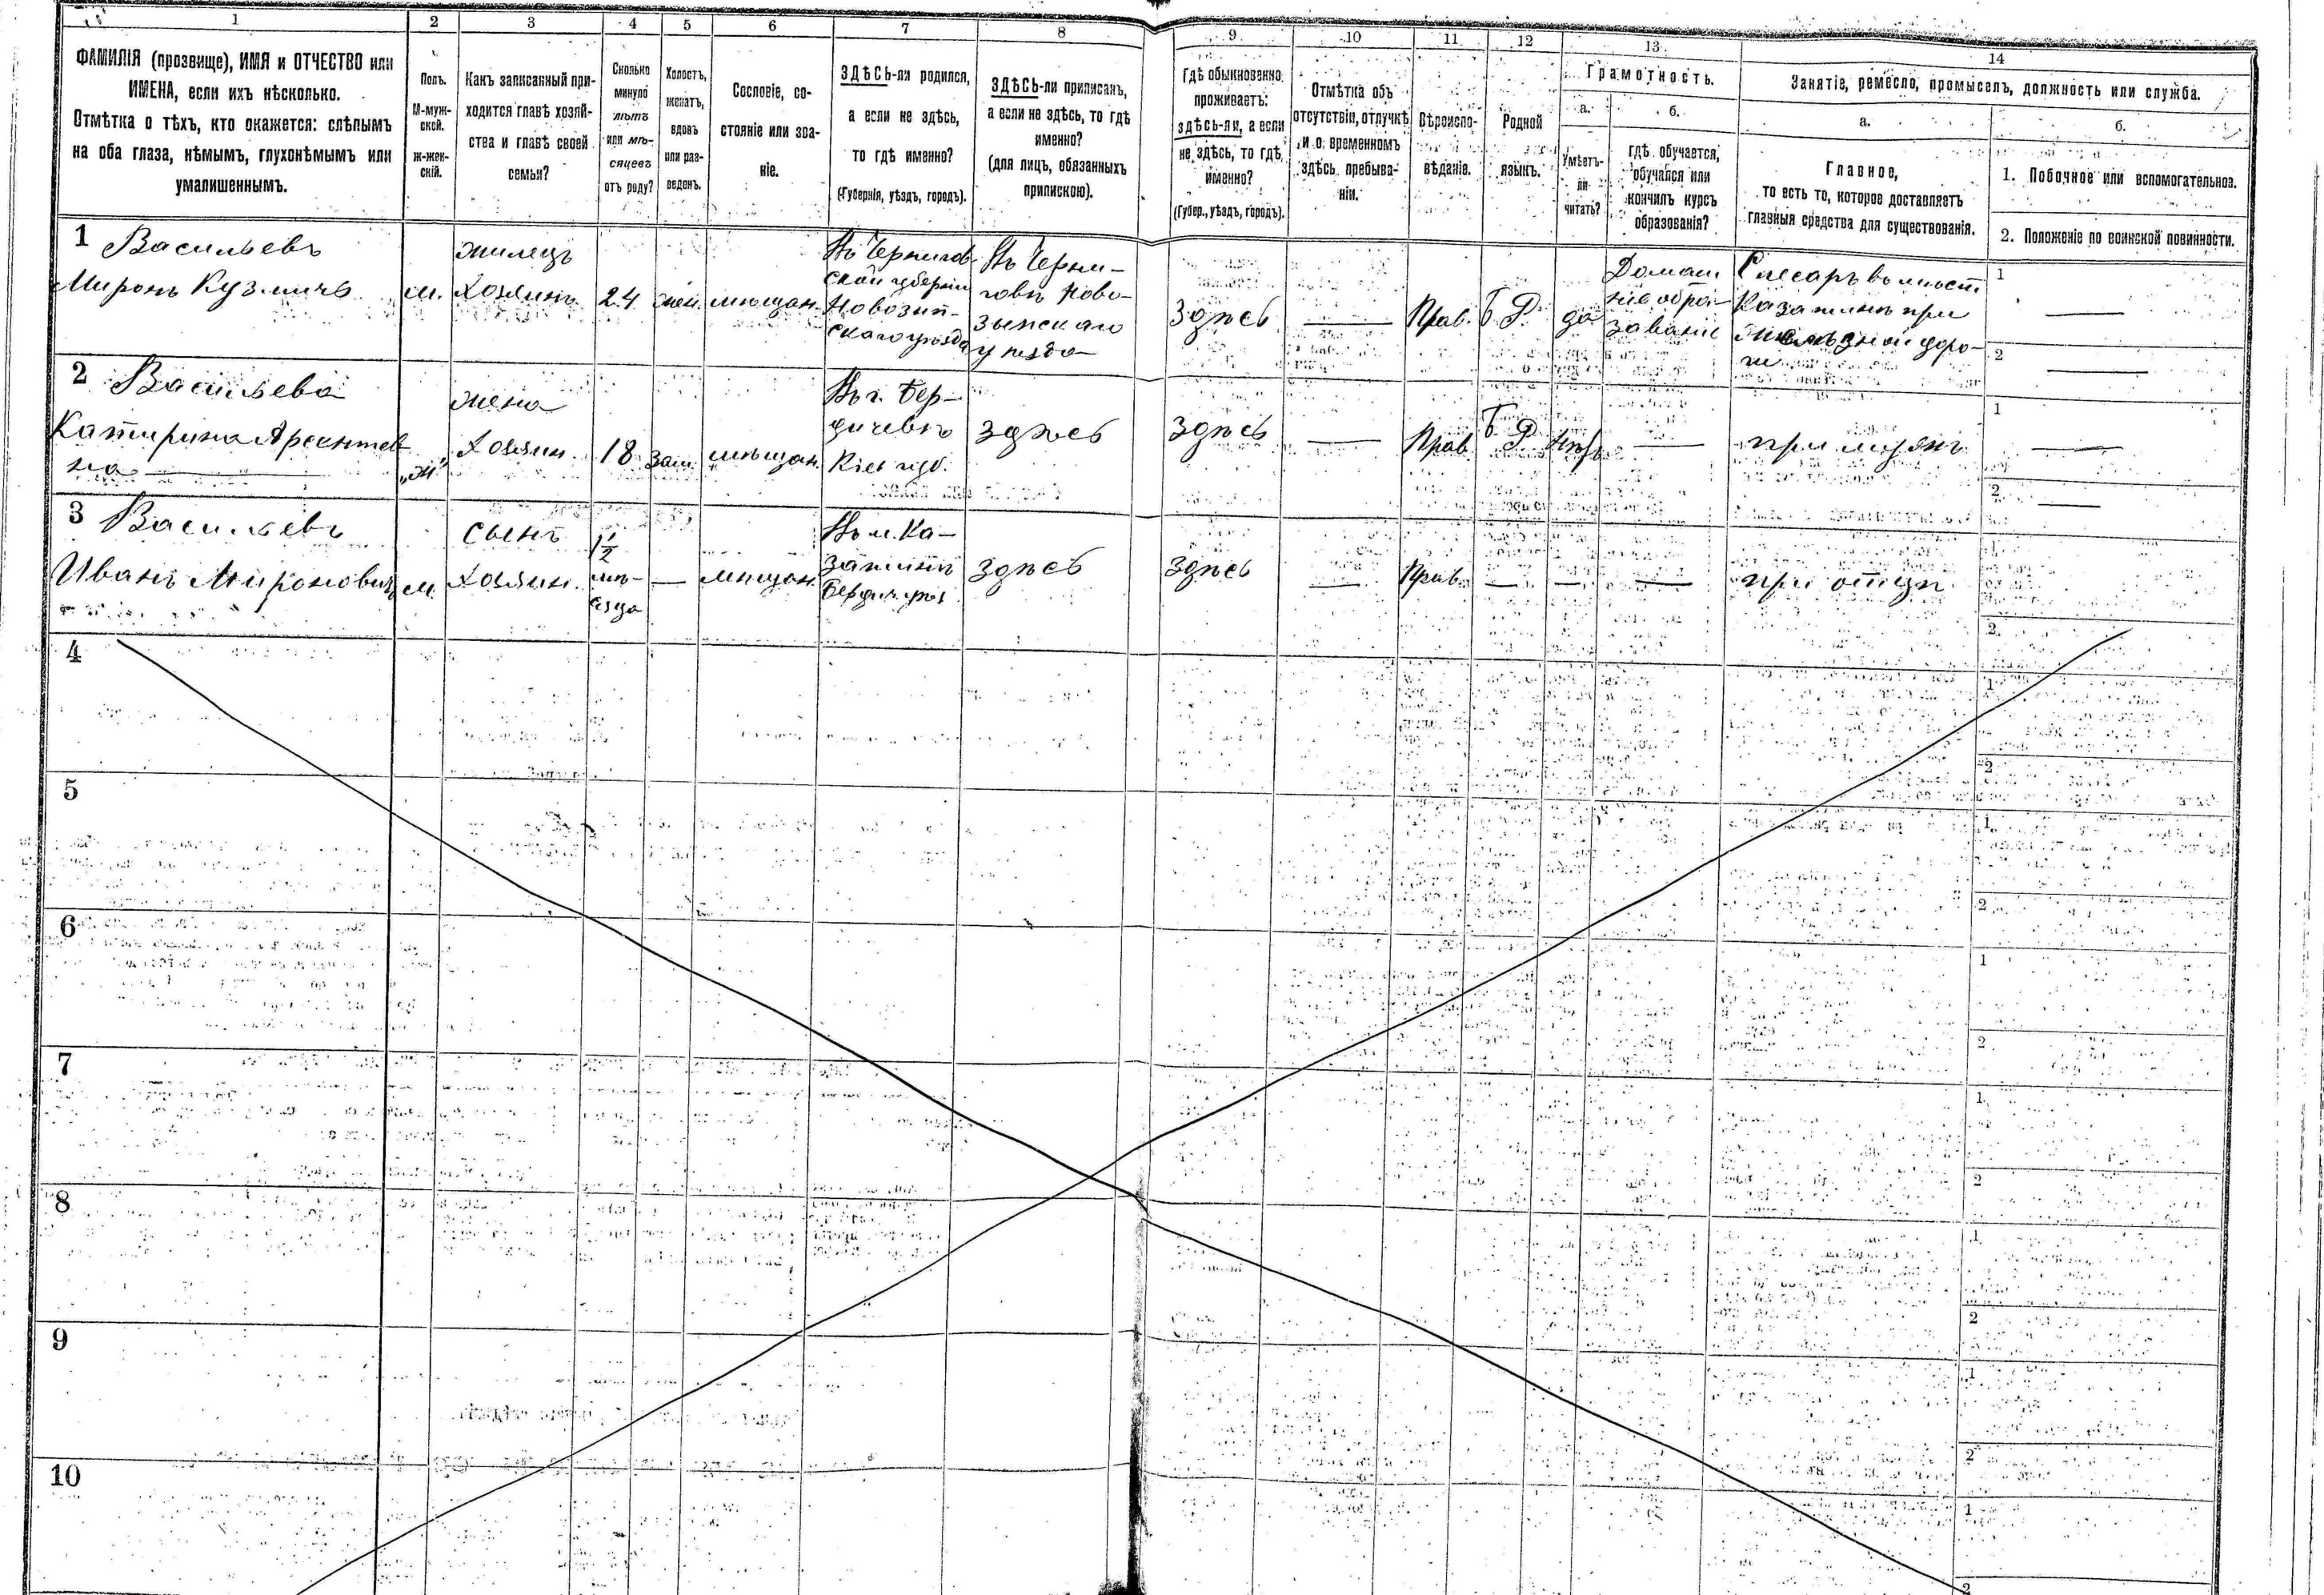 1 2 3 4 5 6 7 8 9 10 11 12 13 14
ФАМИЛІЯ (прозвище), ИМЯ и ОТЧЕСТВО или
ИМЕНА, если ихъ нѣсколько.
Отмѣтка о тѣхъ, кто окажется: слѣпымъ
на оба глаза, нѣмымъ, глухонѣмымъ или
умалишеннымъ.
Полъ.
М-муж-
ской.
Ж-жен-
скій.
Какъ записанный при-
ходится главѣ хозяй-
ства и главѣ своей
семьи?
Сколько
минуло
лѣтъ
или мѣ-
сяцевъ
отъ роду?
Холостъ,
женатъ,
вдовъ
или раз-
веденъ.
Сословіе, со-
стояніе или зва-
ніе.
ЗДѢСЬ-ли родился,
а если не здѣсь,
то гдѣ именно?
(Губернія, уѣздъ, городъ).
ЗДѢСЬ-ли приписанъ,
а если не здѣсь, то гдѣ
именно?
(для лицъ, обязанныхъ
припискою).
Гдѣ обыкновенно
проживаетъ:
здѣсь-ли, а если
не здѣсь, то гдѣ
именно?
(Губер., уѣздъ, городъ).
Отмѣтка объ
отсутствіи, отлучкѣ
и о временномъ
здѣсь пребыва-
ніи.
Вѣроиспо-
вѣданіе.
Родной
языкъ.
Грамотность.
а.
Умѣетъ-
ли
читать?
б.
гдѣ обучается,
обучался или
кончилъ курсъ
образованія?
Занятіе, ремесло, промыселъ, должность или служба.
а.
Главное,
то есть то, которое доставляетъ
главныя средства для существованія.
б.
1. Побочное или вспомогательное.
2. Положеніе по воинской повинности.
1 Васильевъ
Миронъ Кузмичъ
м.
жилецъ
Хозяинъ
24
жен.
мѣщан.
Въ Чернигов-
ской губерніи
Новозып-
скаго уѣзда
Въ Черни-
говѣ Ново-
зыпскаго
уѣзда
Здѣсь
Прав.
Б Р.
да
Домаш
нее обра-
заваніе
Слесаръ въ мѣст
Казатинѣ при
желѣзной доро-
ги
1
2
2 Васильева
Катирина Арсентев
на
„ж"
жена
Хозяин.
18
Зам.
мѣщан.
Въ г. Бер-
дичевѣ
Кіев губ.
здѣсь
Здѣсь
Прав
Б Р.
Нѣтъ
при мужѣ
1
2
3 Васильевъ
Иванъ Мироновичъ
м.
сынъ
Хозяин.
1½
мѣ-
сяца
мѣщан
Въ м. Ка-
затинѣ
Бердич уѣз
здѣсь
Здѣсь
Прав.
при отцѣ
2
4
1
2
5
1
2
6
1
2
7
1
2
8
1
2
9
1
2
10
1
2